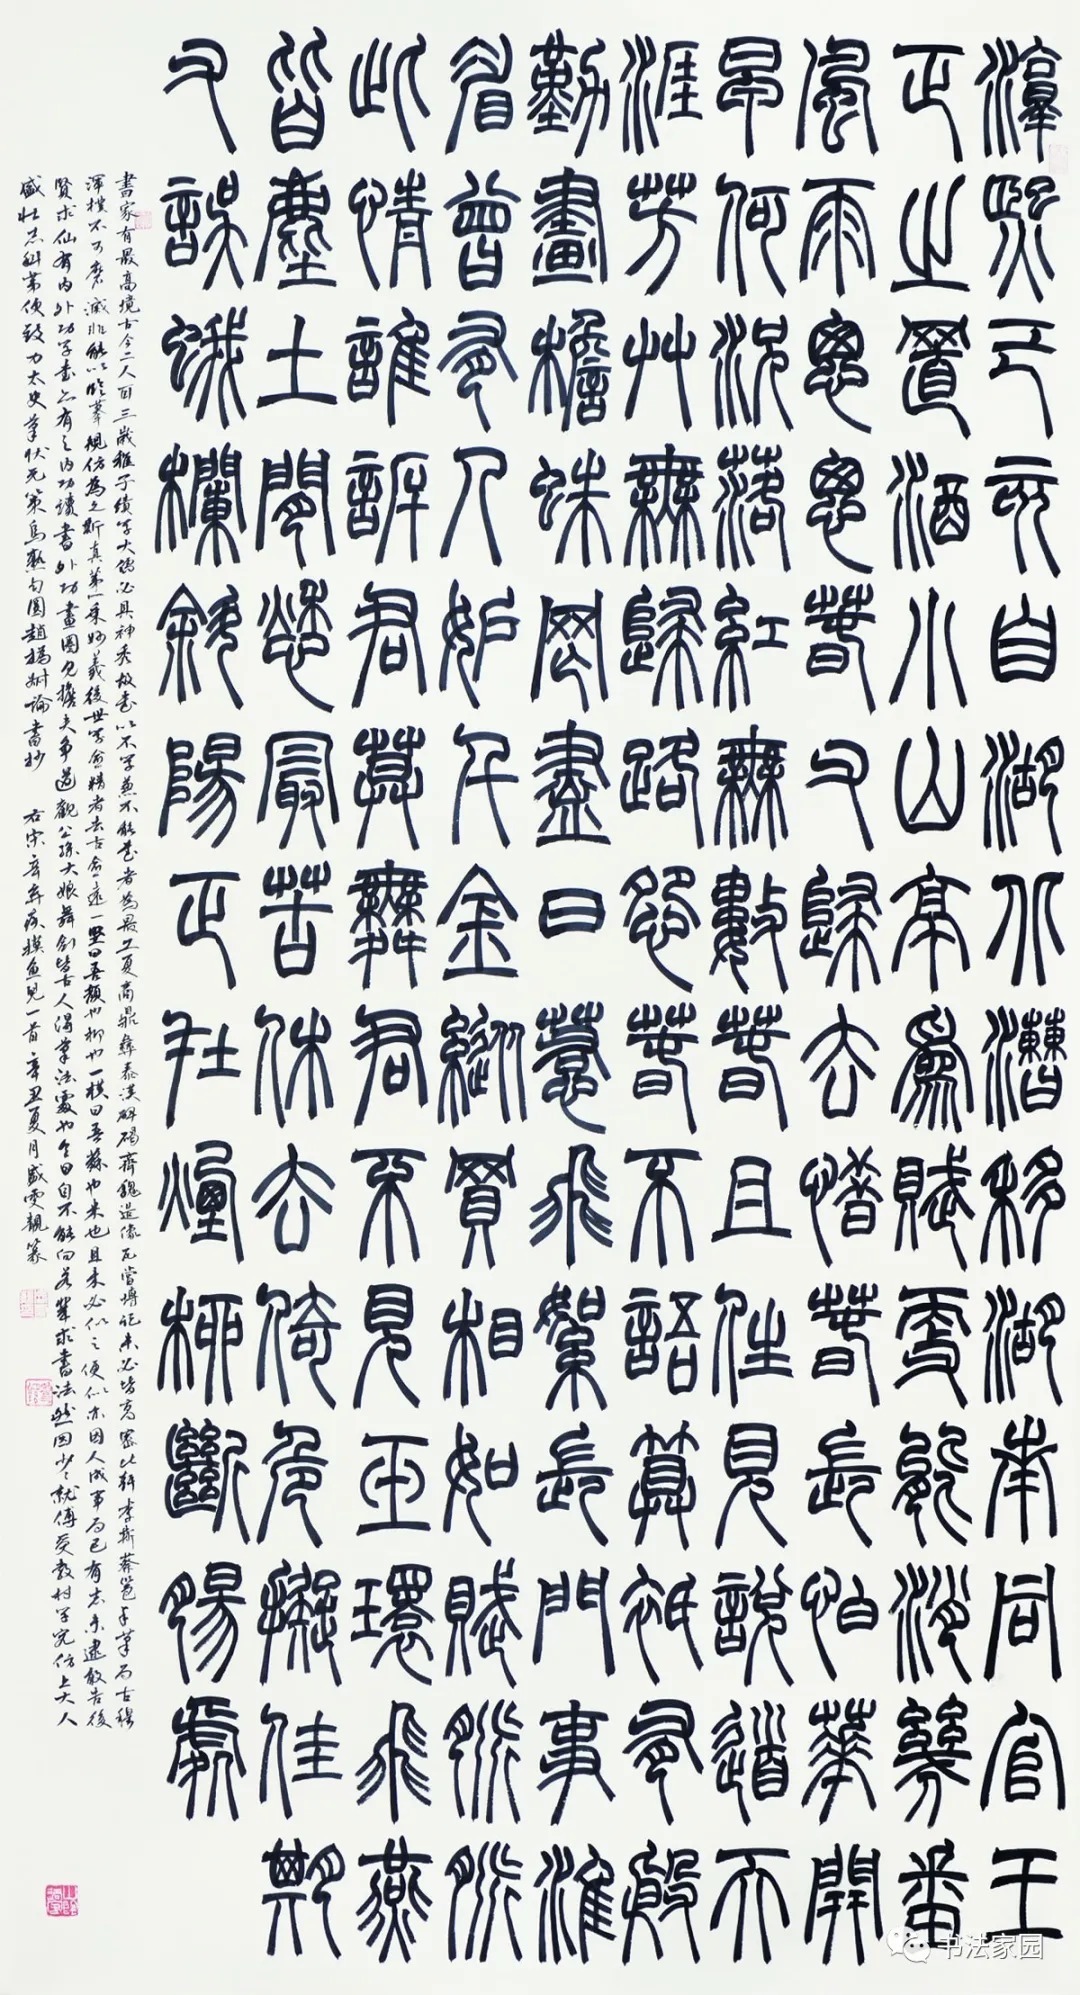 淳熙己亥自湖北漕移湖南同官王
正之置酒小山亭為賦更能消幾番
風雨悤悤春又歸去惜春長怕華開
早何況落紅無數春且住見說道天
涯芳艸無歸路怨春不語算祇有殷
勤畫檐蛛网盡日惹飛絮長門事準
眉曾有人妒千金縱買相如賦脈脈
此情誰訴君莫舞君不見玉環飛燕
皆塵土閒愁最苦休去倚危擬佳期
又誤蛾欄斜陽正在煙柳斷腸處
書家有最高境古今二人而三歲稚子績學大儒必具神秀故書以不學書不能書者為最工夏商鼎彝秦漢碑碣齊魏造像瓦當塼記未必皆高密比榦李斯蔡邕手筆而古穆
渾樸不可磨滅非能以臨摹規仿為之斯真第一乘妙義後世學愈精者去古愈遠一豎曰吾顏也柳也一橫曰吾蘇也米也且未必似之便似亦因人成事而已有志未逮敢告後
賢求仙有內外功學書亦有之內功讀書外功畫圈擔夫爭道觀公孫大娘舞劍皆古人得筆法處也自不能向若輩求書法然因少小就傅受教村學究仿上大人
盛壯志科第便致力太史筆烏熟勻圓趙撝叔論書抄 右宋辛棄疾摸魚兒一首辛丑夏月盛雯靚篆
书法家园